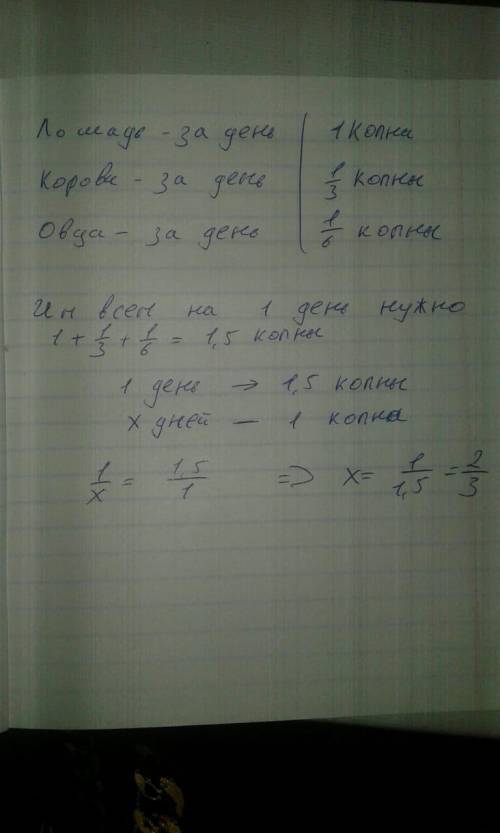 Лошадь - за день | 1 копна
Корова - за день | 1/3 копны
Овца - за день | 1/6 копны
Им всем на 1 день нужно
1 + 1/3 + 1/6 = 1,5 копны
1 день → 1,5 копны
x дней — 1 копна
1/x = 1,5/1 => x = 1/1,5 = 2/3